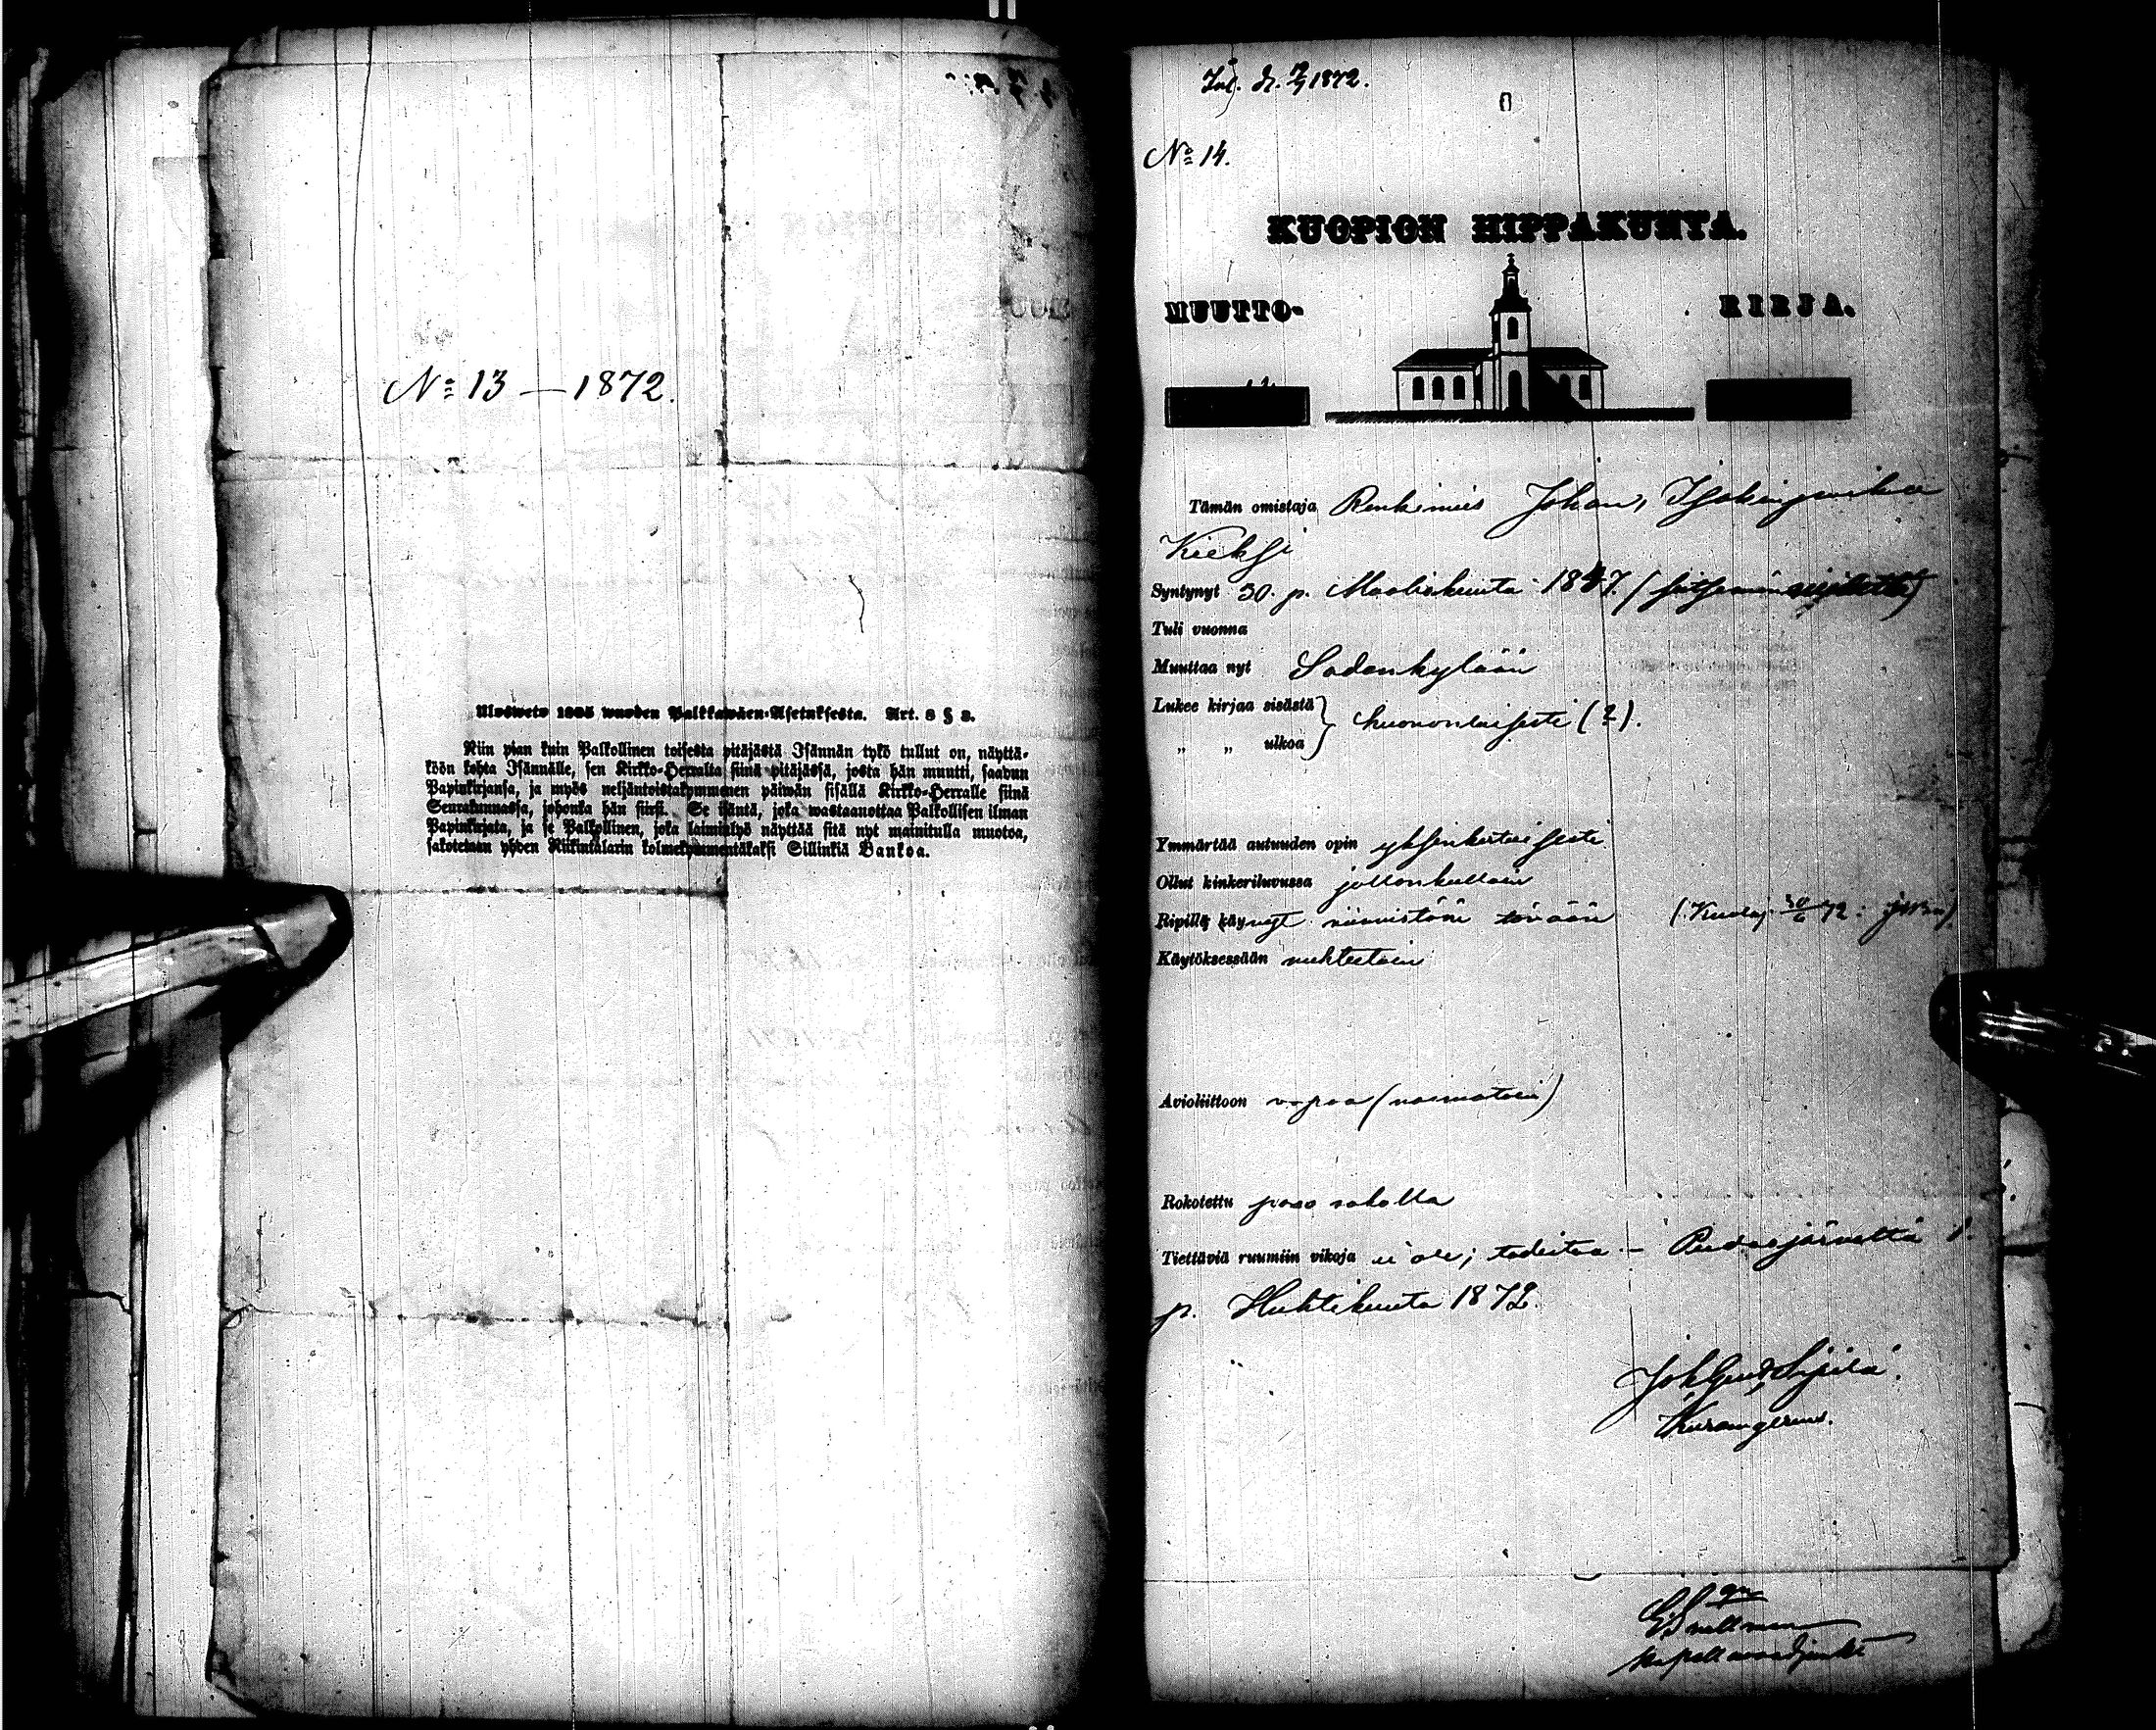 № 13 — 1872.
Ulosweto 1805 wuoden Palkkawäen-Asetuksesta. Art. 8 § 2.
Niin pian kuin Palkollinen toisesta pitäjästä Isännän tykö tullut on, näyttä-
köön kohta Isännälle, sen Kirkko-Herralta siinä pitäjässä, josta hän muutti, saadun
Papinkirjansa, ja myös neljäntoistakymmenen päiwän sisällä Kirkko-Herralle siinä
Seurakunnassa, johonka hän siirsi. Se isäntä, joka wastaanottaa Palkollisen ilman
Papinkirjata, ja se Palkollinen, joka laiminlyö näyttää sitä nyt mainitulla muotoa,
sakotetaan yhden Riikintalarin kolmekymmentäkaksi Sillinkiä Bankoa.
1872.
№ 14.
KUOPION HIPPAKUNTA.
MUUTTO- KIRJA.
Tämän omistaja Renkimies Johan,
Kieksi
Syntynyt 30 p. Maaliskuuta 1847. (seitsemän
Tuli vuonna
Muuttaa nyt Sodankylään
Lukee kirjaa sisästä } huononlaisesti (2).
„ „ ulkoa
Ymmärtää autuuden opin yksinkertaisesti
Ollut kinkeriluvussa jolloinkulloin
Ripillä käynyt
Käytöksessään nuhteetoin
Avioliittoon vapaa (naimatoin)
Rokotettu
Tiettäviä ruumiin vikoja ei ole; todistaa — Pudasjärveltä 1.
p. Huhtikuuta 1872.